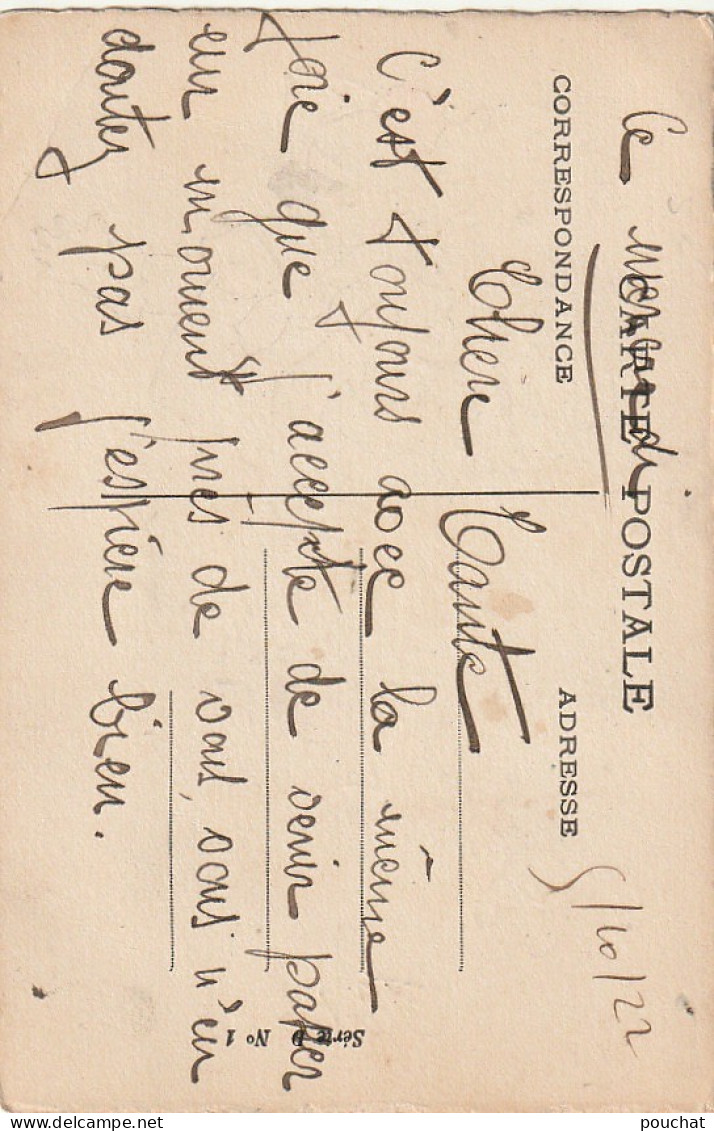 Ce mercredi
CARTE POSTALE
CORRESPONDANCE
ADRESSE
5/10/22
Chère Tante
C'est toujours avec la même
joie que j'accepte de venir passer
un moment près de vous, vous n'en
doutez pas j'espère bien.
Série D N° 1
pouchat